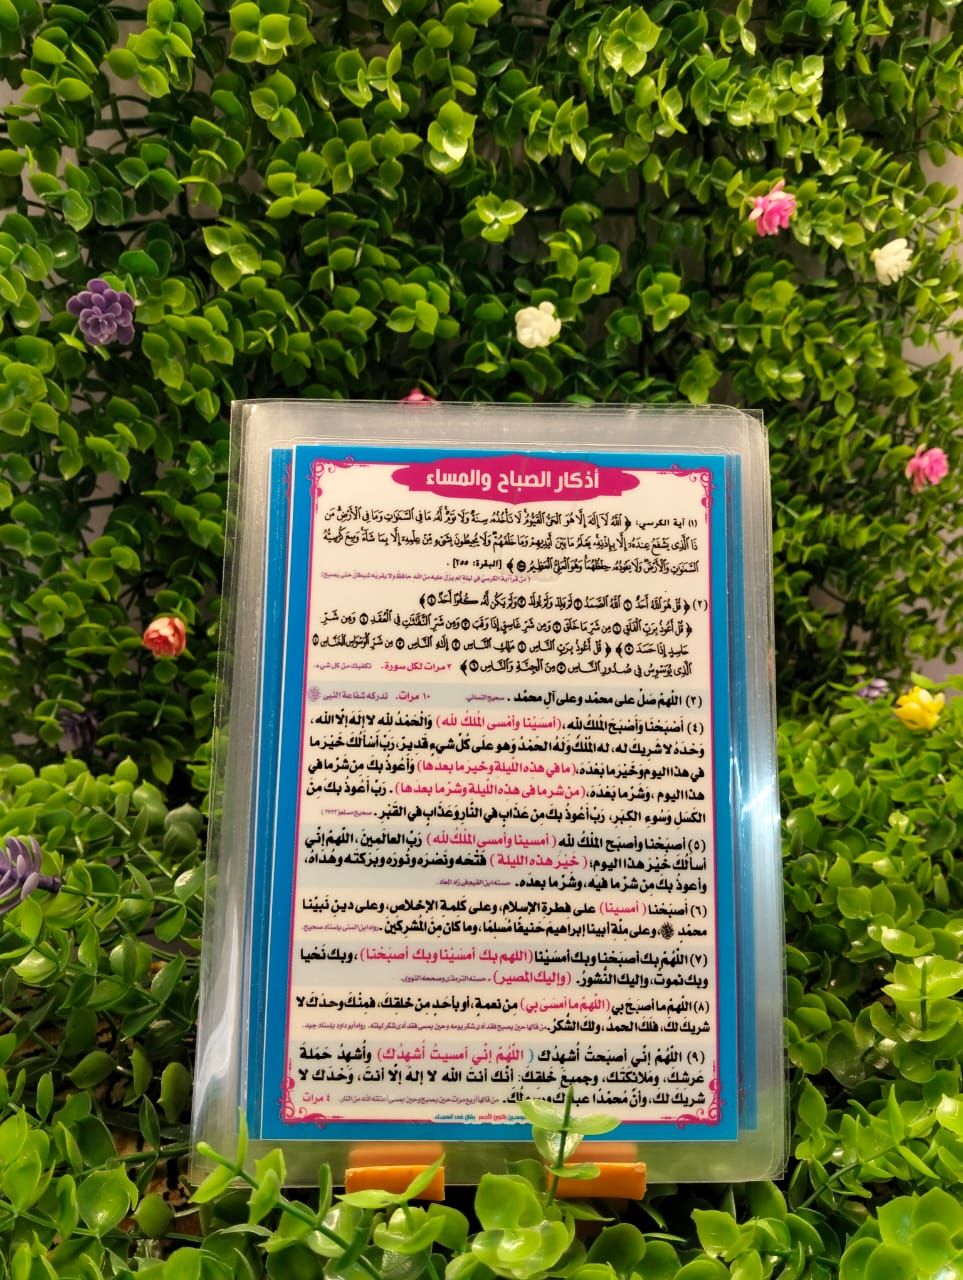 أذكار الصباح والمساء
(١) آية الكرسي: ﴿ ٱللَّهُ لَآ إِلَٰهَ إِلَّا هُوَ ٱلْحَىُّ ٱلْقَيُّومُ لَا تَأْخُذُهُۥ سِنَةٌ وَلَا نَوْمٌ لَّهُۥ مَا فِى ٱلسَّمَٰوَٰتِ وَمَا فِى ٱلْأَرْضِ مَن
ذَا ٱلَّذِى يَشْفَعُ عِندَهُۥٓ إِلَّا بِإِذْنِهِۦ يَعْلَمُ مَا بَيْنَ أَيْدِيهِمْ وَمَا خَلْفَهُمْ وَلَا يُحِيطُونَ بِشَىْءٍ مِّنْ عِلْمِهِۦٓ إِلَّا بِمَا شَآءَ وَسِعَ كُرْسِيُّهُ
ٱلسَّمَٰوَٰتِ وَٱلْأَرْضَ وَلَا يَـُٔودُهُۥ حِفْظُهُمَا وَهُوَ ٱلْعَلِىُّ ٱلْعَظِيمُ ﴾ [البقرة: ٢٥٥] .
( من قرأ آية الكرسي في ليلة لم يزل عليه من الله حافظ ولا يقربه شيطان حتى يصبح)
(٢) ﴿ قُلْ هُوَ ٱللَّهُ أَحَدٌ ۝١ ٱللَّهُ ٱلصَّمَدُ ۝٢ لَمْ يَلِدْ وَلَمْ يُولَدْ ۝٣ وَلَمْ يَكُن لَّهُۥ كُفُوًا أَحَدٌۢ ۝٤ ﴾
﴿ قُلْ أَعُوذُ بِرَبِّ ٱلْفَلَقِ ۝١ مِن شَرِّ مَا خَلَقَ ۝٢ وَمِن شَرِّ غَاسِقٍ إِذَا وَقَبَ ۝٣ وَمِن شَرِّ ٱلنَّفَّٰثَٰتِ فِى ٱلْعُقَدِ ۝٤ وَمِن شَرِّ
حَاسِدٍ إِذَا حَسَدَ ۝٥ ﴾ ﴿ قُلْ أَعُوذُ بِرَبِّ ٱلنَّاسِ ۝١ مَلِكِ ٱلنَّاسِ ۝٢ إِلَٰهِ ٱلنَّاسِ ۝٣ مِن شَرِّ ٱلْوَسْوَاسِ ٱلْخَنَّاسِ ۝٤
ٱلَّذِى يُوَسْوِسُ فِى صُدُورِ ٱلنَّاسِ ۝٥ مِنَ ٱلْجِنَّةِ وَٱلنَّاسِ ۝٦ ﴾ ٣ مرات لكل سورة. تكفيك من كل شيء.
(٣) اللَّهُمَّ صَلِّ على محمَّد وعلى آلِ محمَّد . صحيح النسائي ١٠ مرات. تدركه شفاعة النبي ﷺ
(٤) أَصْبَحْنا وَأَصْبَحَ المُلْكُ لله، (أَمسَيْنا وأَمْسى المُلكُ لله) وَالحَمْدُ لله لا إلهَ إلاّ الله،
وَحْدَهُ لا شريكَ له، له المُلْكُ وَلَهُ الحَمْدُ وَهو على كُلِّ شيءٍ قديرٌ، ربِّ أسألُكَ خَيْرَ ما
في هذا اليوم وَخَيْرَ ما بَعْدَه، (ما في هذه اللَّيلةِ وخيرَ ما بعدها) وَأعوذُ بكَ مِن شَرِّ ما في
هذا اليوم ،وَشَرِّ ما بَعْدَه، (من شر ما في هذه اللَّيلة وشرِّ ما بعدها) . رَبِّ أَعُوذُ بكَ مِنَ
الكَسَلِ وَسُوءِ الكِبَر، رَبِّ أعوذُ بكَ مِنْ عَذابٍ في النَّار وَعَذابٍ في القَبْر . صحيح مسلم (٢٧٢٣)
(٥) أصبَحنا وأصبح المُلكُ لله (أمسينا وأمسى المُلْكُ لله) رَبِّ العالَمين، اللهُمَّ إنِّي
أسألُكَ خَيْرَ هذا اليوم؛ ( خَيْرَ هذه الليلة ) فَتْحَه ونَصْرَه ونُورَه وبَرَكتَه وهُدَاهُ،
وأعوذُ بكَ مِن شَرِّ ما فيه، وشَرِّ ما بعدَه. حسنه ابن القيم في زاد المعاد.
(٦) أصبَحْنا (أمسينا) على فِطرةِ الإسلام، وعلى كَلِمةِ الإخلاص، وعلى دينِ نَبيِّنا
محمّد ﷺ، وعلى مِلَّةِ أبينا إبراهيمَ حَنيفًا مُسلِمًا، وما كانَ مِنَ المشركينَ. رواه ابن السني بإسناد صحيح.
(٧) اللَّهُمَّ بِكَ أَصْبَحْنا وبِكَ أَمسَيْنا (اللهم بِكَ أَمْسَيْنا وبِكَ أَصْبَحْنا)، وبكَ نَحْيا
وبِكَ نَموتُ، وإليكَ النُّشورُ. (وإليك المصير). حسنه الترمذي وصححه النووي.
(٨) اللهُمَّ ما أصبَحَ بي (اللَّهمَّ ما أمسَى بي) مِن نعمةٍ، أو بأحَدٍ مِن خلقِكَ، فمِنْكَ وحدَكَ لا
شريكَ لكَ، فلكَ الحمدُ، ولكَ الشُّكرُ. من قالها حين يصبح فقد أدى شكر يومه وحين يمسي فقد أدى شكر ليلته. رواه أبو داود بإسناد جيد.
(٩) اللَّهُمَّ إنِّي أصبَحتُ أُشهِدُكَ ( اللَّهُمَّ إنِّي أمسيتُ أُشهِدُكَ) وأُشهِدُ حَمَلةَ
عرشِكَ، ومَلائكتَكَ، وجميعَ خَلقِكَ: أنَّكَ أنتَ الله لا إلهَ إلّا أنتَ، وَحْدَكَ لا
شريكَ لكَ، وأنَّ مُحمَّدًا من قالها أربع مرات حين يصبح وحين يمسي أعتقه الله من النار. ٤ مرات
باللون الأحمر يقال في المساء